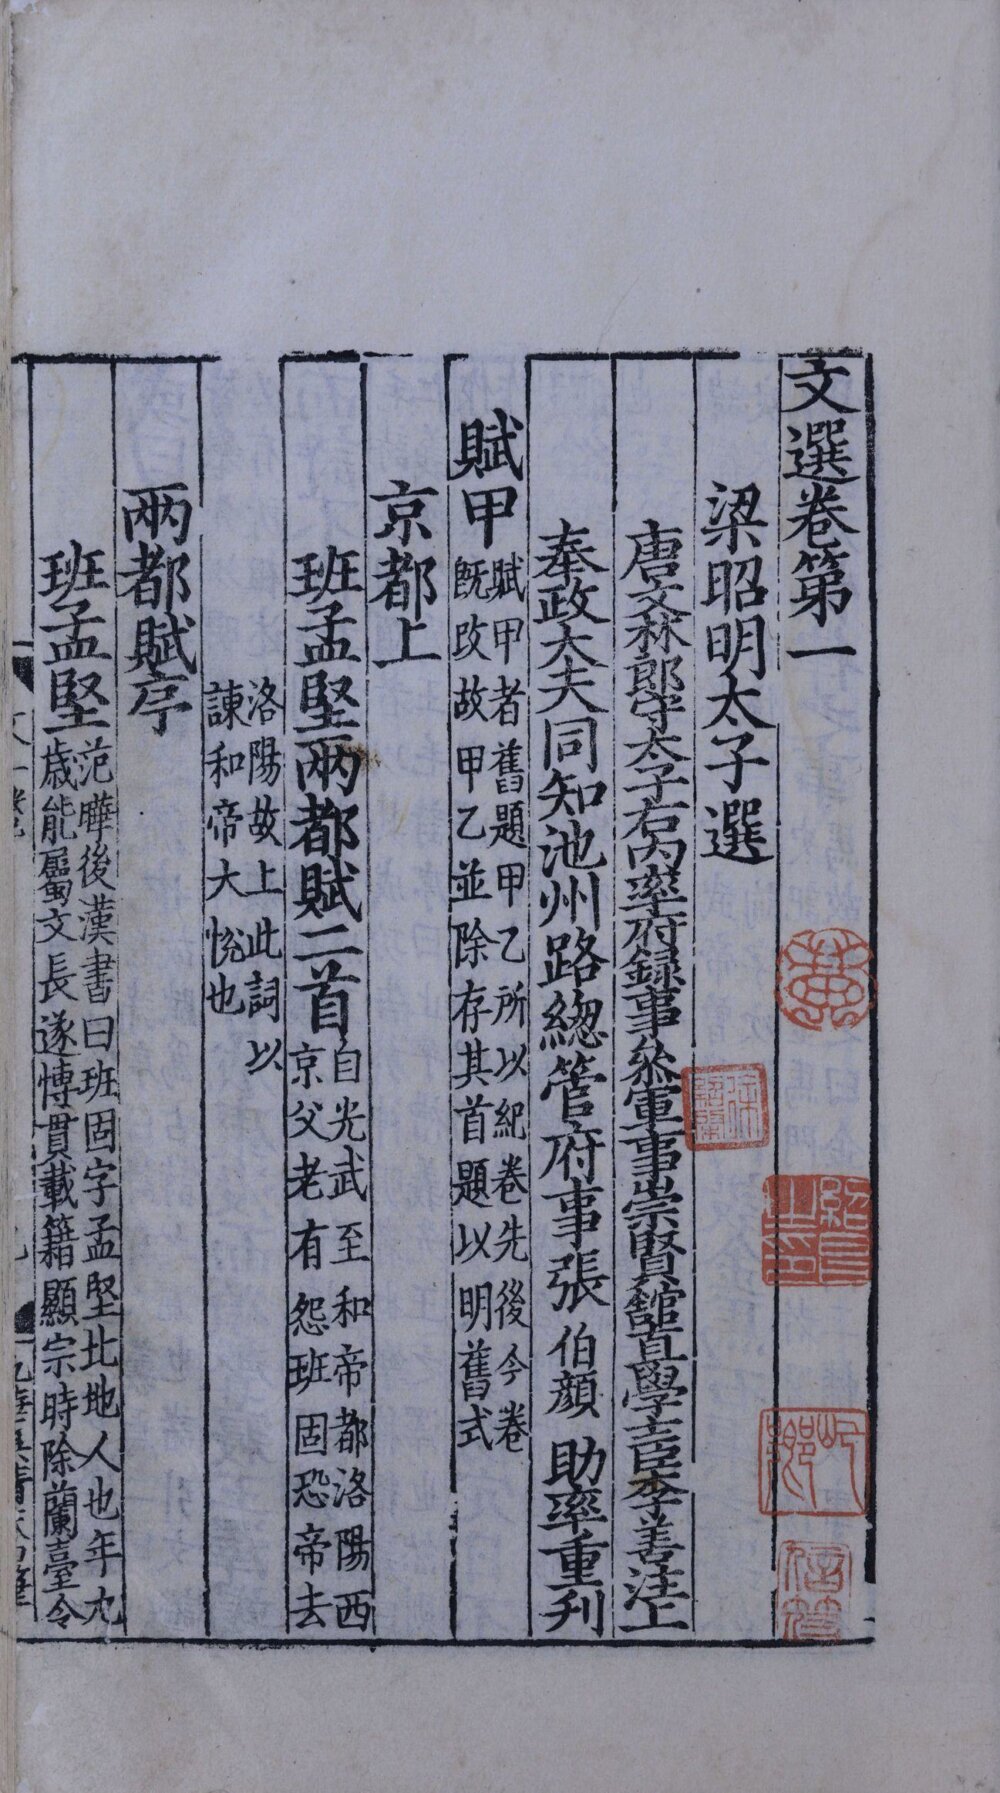 文選卷第一
梁昭明太子選
唐文林郎守太子右内率府録事叅軍事崇賢館直學士臣李善注上
奉政大夫同知池州路緫管府事張伯顔助率重刋
賦甲
賦甲者舊題甲乙所以紀卷先後今卷
旣改故甲乙並除存其首題以明舊式
京都上
班孟堅兩都賦二首
自光武至和帝都洛陽西
京父老有怨班固恐帝去
洛陽故上此詞以
諫和帝大悅也
兩都賦序
班孟堅
范曄後漢書曰班固字孟堅北地人也年九
歲能屬文長遂博貫載籍顯宗時除蘭臺令